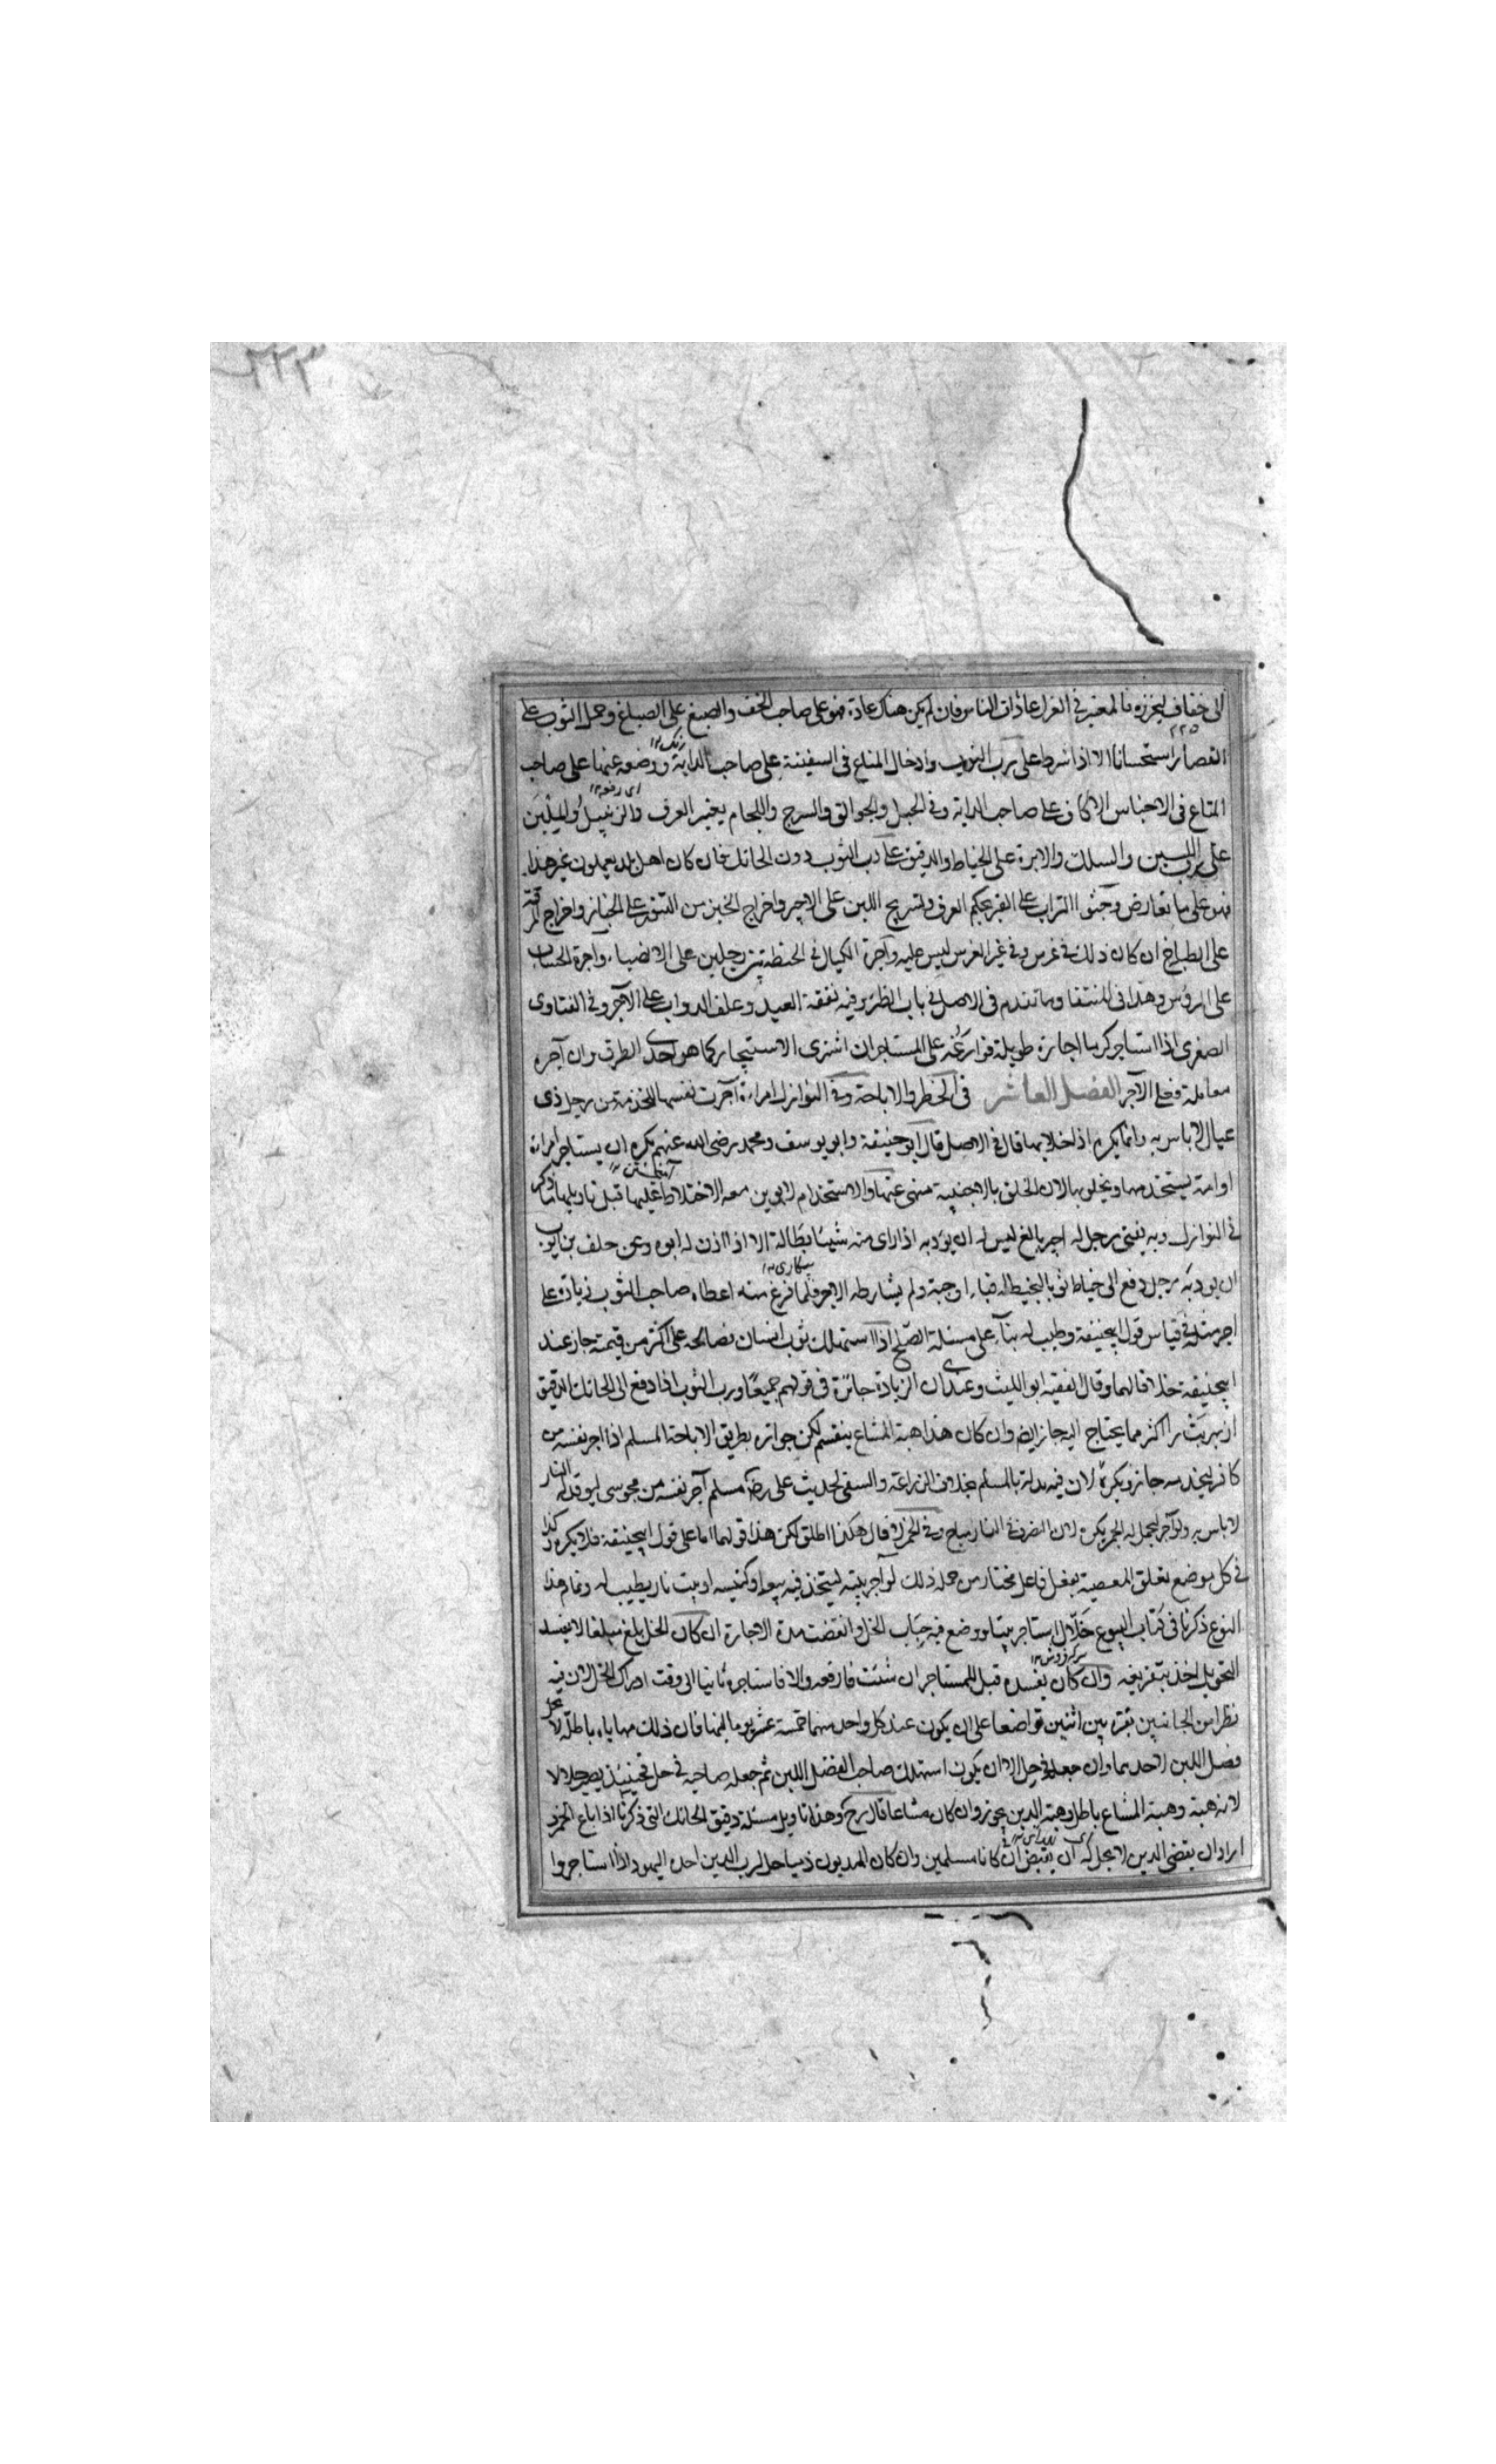 ٢٢٣
الى خفاف ليخرزه فالمعتبر في الغزل عادات الناس فان لم يكن هناك عادة فهو على صاحب الخف والصبغ على الصباغ وحمل الثوب على
٢٢٥
القصار استحسانا الا اذا شرط على رب الثوب وادخال المتاع في السفينة على صاحب الدابة ووضعه عنها على صاحب
المتاع في الاجناس الاكاف على صاحب الدابة وفي الحبل والجوالق والسرج واللجام يعتبر العرف والزنبيل والملبن
على رب اللبن والسلك والابرة على الخياط والدقيق على رب الثوب دون الحائك فان كان اهل بلد يعملون غير هذا
فهو على ما تعارض وحثوا التراب على القبر بحكم العرف وتشريج اللبن على الاجير واخراج الخبز من التنور على الخباز واخراج المرقة
على الطباخ ان كان ذلك في عرس وفي غير العرس ليس عليه واجرة الكيال في الحنطة بين رجلين على الانصباء واجرة الحساب
على الرؤس وهذا في المنتقا وما تقدم في الاصل في باب الظئر وفيه نفقة العبد وعلف الدواب على الآجر وفي الفتاوى
الصغرى اذا استاجر كرما اجارة طويلة على المستاجر ان اشترى الاستيجار كما هو احدى الطرق وان آجره
معاملة فعلى الآجر الفصل العاشر في الحظر والاباحة وفي النوازل امراءة آجرت نفسها للخدمة من رجل ذى
عيال لاباس به وانما يكره اذا خلا بها قال في الاصل قال ابو حنيفة وابو يوسف ومحمد رضى الله عنهم يكره ان يستاجر امراة
او امة يستخدمها ويخلو بها لان الخلق بالاجنبية منهى عنها والاستخدام لا يؤمن معه الاختلاط عليها قبل تاويلها ما ذكر
في النوازل وبه يفتى رجل له اجير بالغ ليس له ان يودبه اذا راى منه شيئا بطالة الا اذا اذن له ابوه وعن خلف بن ايوب
ان يودبه رجل دفع الى خياط ثوبا ليخيط له قباء او جبة ولم يشارطه الاجر فلما فرغ منه اعطاه صاحب الثوب زيادة على
اجر مثله في قياس قول ابيحنيفة وطيب له بناء على مسئلة الصلح اذا استهلك ثوب انسان فصالحه على اكثر من قيمة جاز عند
ابيحنيفة خلافا لهما وقال الفقيه ابو الليث وعندى ان الزيادة جائزة في قولهم جميعا ورب الثوب اذا دفع الى الحائك الدقيق
اكثر مما يحتاج اليه جاز ايضا وان كان هذا هبة المشاع ينقسم لكن جوازه بطريق الاباحة المسلم اذا اجر نفسه من
كافر ليخدمه جاز ويكره لان فيه مذلة بالمسلم بخلاف الزراعة والسقى لحديث على رض مسلم آجر نفسه من مجوسى ليوقد له النار
لاباس به ولو آجر ليحمل له الخمر يكره لان التصرف في النار مباح وفي الخمر لا قال هكذا اطلق لكن هذا قولهما اما على قول ابيحنيفة فلا يكره وكذا
في كل موضع تعلق المعصية بفعل فاعل مختار من جملة ذلك لو آجر بيته ليتخذ فيه بيعة او كنيسة او بيت نار يطيب له وتمام هذا
النوع ذكرنا في كتاب البيوع خلال استاجر بيتا ووضع فيه حباب الخل وانقضت مدة الاجارة ان كان الخل بلغ مبلغا لا يفسد
التحويل اخذ بتفريغه وان كان يفسده قيل للمستاجر ان شئت فارفعه والا فاستاجره ثانيا الى وقت ادراك الخل لان فيه
نظرا من الجانبين بقرة بين اثنين تواضعا على ان يكون عند كل واحد منهما خمسة عشر يوما فان ذلك مهاياة باطلة لا يحل
فضل اللبن لاحدهما وان جعله في حل الا ان يكون استهلك صاحب الفضل اللبن ثم جعله صاحبه في حل فحينئذ يصير حلالا
لانه هبة وهبة المشاع باطل وهبة الدين يجوز وان كان مشاعا قال رح وهذا تاويل مسئلة دقيق الحائك التى ذكرنا اذا باع الخمر و
اراد ان يقضى الدين لا يحل له ان يقبض ان كانا مسلمين وان كان المديون ذميا حل لرب الدين اخذه اليهود اذا استاجروا